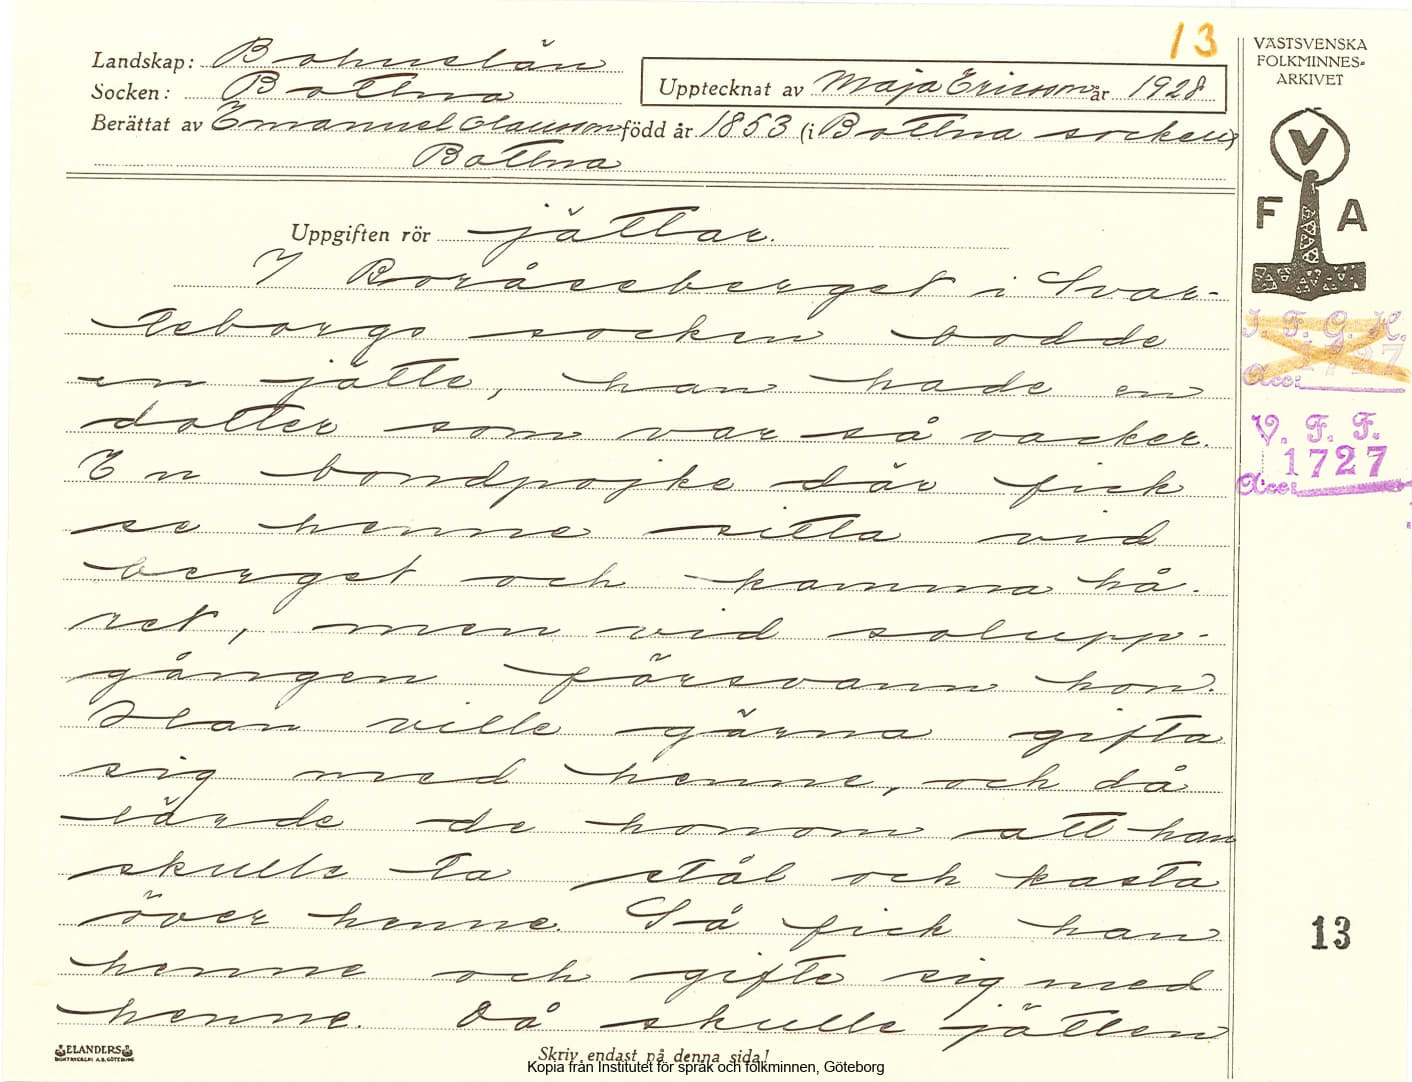 13
VÄSTSVENSKA
FOLKMINNES=
ARKIVET
Landskap: Bohuslän
Socken: Bottna
Upptecknat av Maja Ericsson år 1928
Berättat av Emanuel Olausson född år 1853 (i Bottna socken)
Bottna
V
F A
Uppgiften rör jättar.
I Boråseberget i Svar-
teborgs socken bodde
en jätte, han hade en
dotter som var så vacker.
En bondpojke där fick
se henne sitta vid
berget och kamma hå-
ret, men vid solupp-
gången försvann hon.
Han ville gärna gifta
sig med henne, och då
lärde de honom att han
skulle ta stål och kasta
över henne. Så fick han
henne och gifte sig med
henne. Då skulle jätten
I. F. G. H.
1727
Acc:
V. F. F.
1727
Acc:
13
ELANDERS
BOKTRYCKERI A.B. GÖTEBORG
Skriv endast på denna sida!
Kopia från Institutet för språk och folkminnen, Göteborg